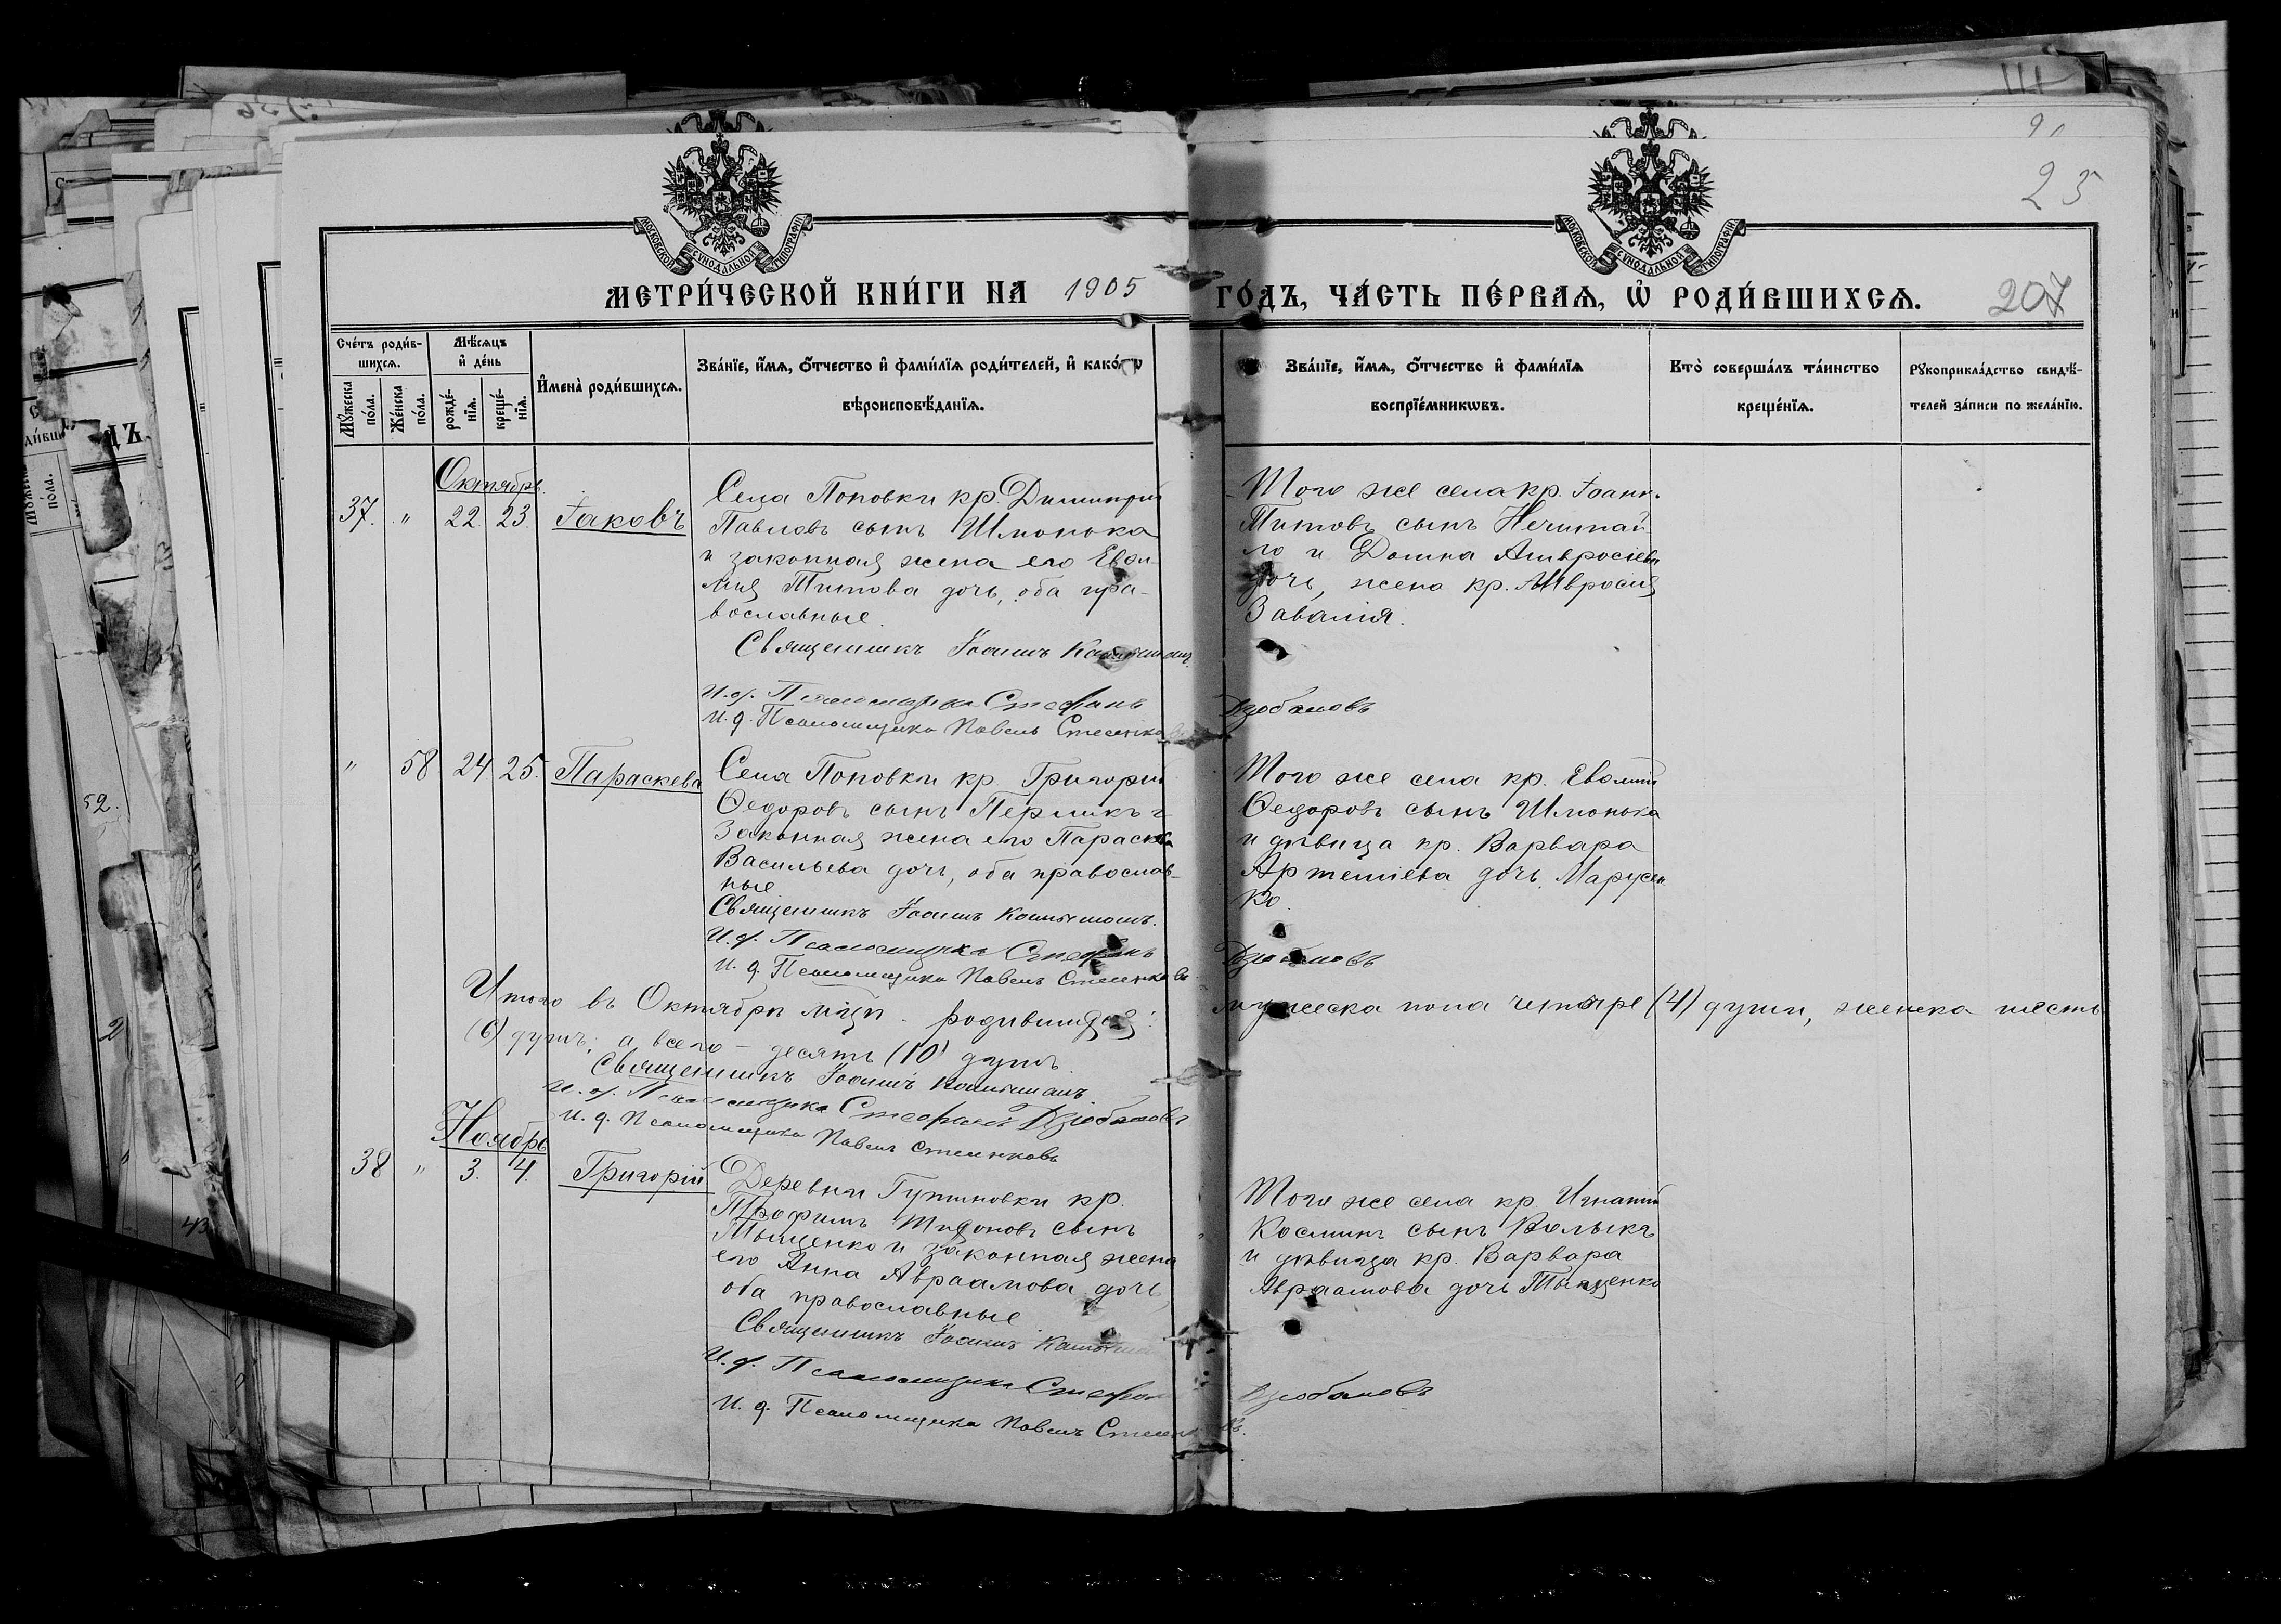 91
25
МОСКОВСКОЙ СѴНОДАЛЬНОЙ ТИПОГРАФІИ
МОСКОВСКОЙ СѴНОДАЛЬНОЙ ТИПОГРАФІИ
МЕТРИ́ЧЕСКОЙ КНИ́ГИ НА 1905 ГО́ДЪ, ЧА́СТЬ ПЕ́РВАѦ, Ѡ҆ РОДИ́ВШИХСѦ. 207
Сче́тъ роди́в-
шихсѧ.
Мꙋ́жеска по́ла.
Же́нска по́ла.
Мѣ́сѧцъ
и҆ де́нь
рожде́-
нїѧ.
креще́-
нїѧ.
И҆мена̀ роди́вшихсѧ.
Зва́нїе, и҆́мѧ, ѻ҆́тчество и҆ фами́лїѧ роди́телей, и҆ како́гѡ
вѣроисповѣ́данїѧ.
Зва́нїе, и҆́мѧ, ѻ҆́тчество и҆ фами́лїѧ
воспрїе́мникѡвъ.
Кто̀ соверша́лъ та́инство
креще́нїѧ.
Рꙋкоприкла́дство свидѣ́-
телей за́писи по жела́нїю.
Октябрь
37. " 22. 23. Іаковъ
Села Поповки кр. Димитрій
Павловъ сынъ Шмонька
и законная жена его Евфи-
мія Титова дочь, оба пра-
вославные.
Священникъ Іоаннъ
И. д. Псаломщика Стефанъ Дзюбановъ
И. д. Псаломщика Павелъ
Того же села кр. Іоанн.
Титовъ сынъ Нечитай-
ло и Домна Амвросіева
дочь, жена кр. Амвросія
Завалія.
" 58 24 25. Параскева
Села Поповки кр. Григорій
Ѳедоровъ сынъ Перликъ и
законная жена его Параскева
Васильева дочь, оба православ-
ные
Священникъ Іоаннъ
И. д. Псаломщика Стефанъ Дзюбановъ
И. д. Псаломщика Павелъ
Того же села кр. Евфимій
Ѳедоровъ сынъ Шмонька
и дѣвица кр. Варвара
Артемиева дочь Марусен
ко.
Итого въ Октябрѣ мцѣ родившихся: мужеска пола четыре (4) души, женска шесть
(6) душъ; а всего – десять (10) душъ.
Священникъ Іоаннъ
И. д. Псаломщика Стефанъ Дзюбановъ
И. д. Псаломщика Павелъ
Ноябрь
38 " 3. 4. Григорій
Деревни кр.
Трофимъ сынъ
Тыщенко и законная жена
его Анна Авраамова дочь,
оба православные
Священникъ Іоаннъ
И. д. Псаломщика Стефанъ Дзюбановъ
И. д. Псаломщика Павелъ
Того же села кр. Игнатій
Косминъ сынъ Волыкъ
и дѣвица кр. Варвара
Авраамова дочь Тыщенко
52.
2
43